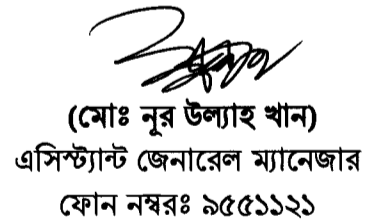 (মোঃ নূর উল্যাহ খান)
এসিস্ট্যান্ট জেনারেল ম্যানেজার
ফোন নম্বরঃ ৯৫৫১১২১